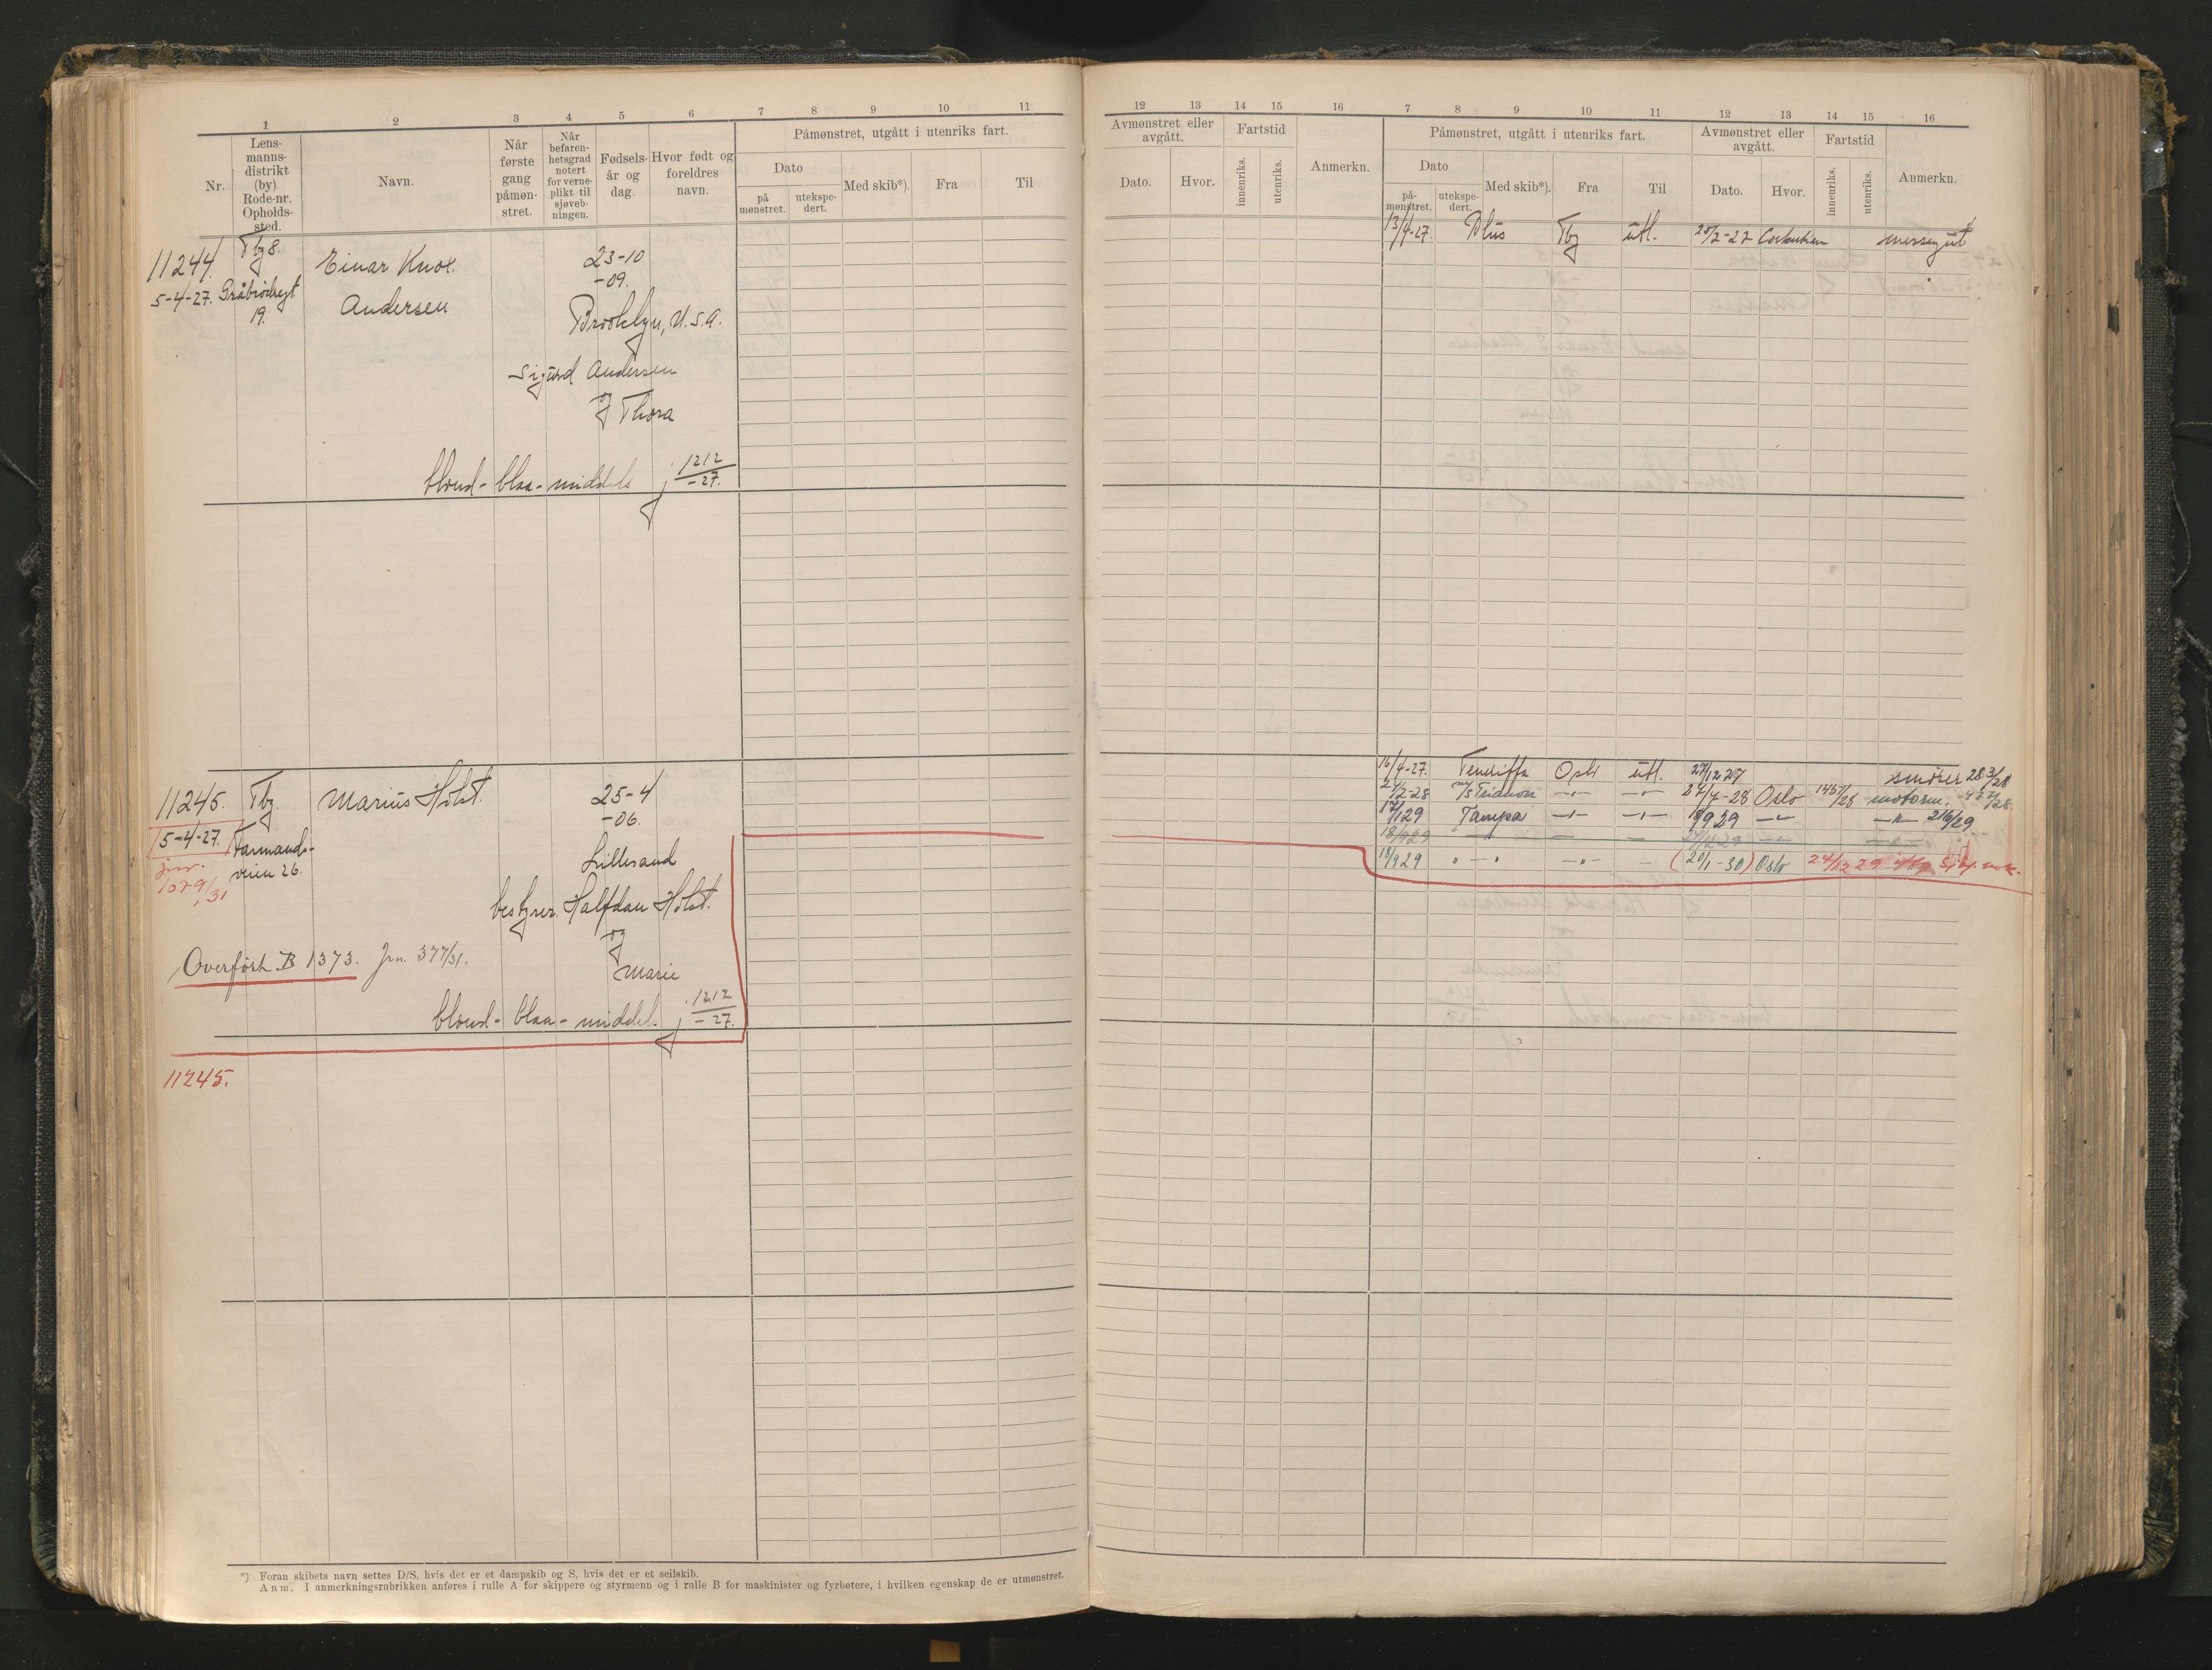 1 2 3 4 5 6 7 8 9 10 11
Nr.
Lens-
manns-
distrikt
(by).
Rode-nr.
Opholds-
sted.
Navn.
Når
første
gang
påmøn-
stret.
Når
befaren-
hetsgrad
notert
for verne-
plikt til
sjøveb-
ningen.
Fødsels-
år og
dag.
Hvor født og
foreldres
navn.
Påmønstret, utgått i utenriks fart.
Dato
på
mønstret.
utekspe-
dert.
Med skib*).
Fra
Til
11244. Tbg 8. Einar Knox. 23-10
-09.
5-4-27.
19. Andersen
Brooklyn, U.S.A.
Sigurd Andersen
og Thora
blond - blaa - middels j 1212
-27.
11245. Tbg. Marius Holst. 25-4
-06.
5-4-27. Farmands-
veien 26.
jnr.
1079/31
Lillesand
bestyrer Halfdan Holst.
og
Marie
Overført B 1373. Jrn. 377/31.
blond - blaa - middel. j 1212
-27.
11245.
*) Foran skibets navn settes D/S, hvis det er et dampskib og S, hvis det er et seilskib.
Anm. I anmerkningsrubrikken anføres i rulle A for skippere og styrmenn og i rulle B for maskinister og fyrbøtere, i hvilken egenskap de er utmønstret.
12 13 14 15 16 7 8 9 10 11 12 13 14 15 16
Avmønstret eller
avgått.
Dato.
Hvor.
Fartstid
innenriks.
utenriks.
Anmerkn.
Påmønstret, utgått i utenriks fart.
Dato
på-
mønstret.
utekspe-
dert.
Med skib*).
Fra
Til
Avmønstret eller
avgått.
Dato.
Hvor.
Fartstid
innenriks.
utenriks.
Anmerkn.
13/4-27. Tbg utl. messegut
16/4-27. Teneriffa Oslo utl. 27/12 27 smører 28 3/28
2/2-28 27/7-28 Oslo motorm.
17/1 29 Tampa -"- -"- 18/9 29 -"- -"- 216/29
18/9 29
18/9 29 " - " -"- - (20/1-30) Oslo 24/12 29